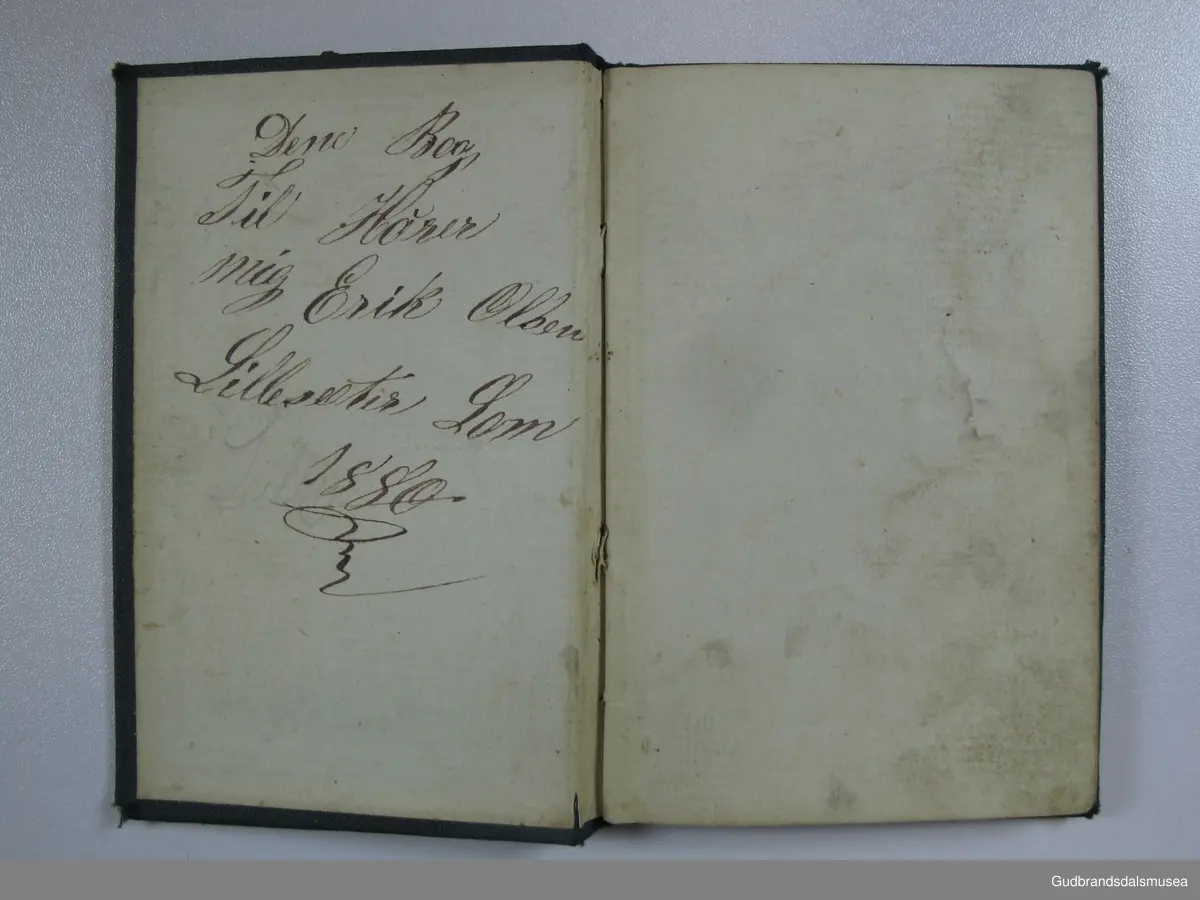 Dene Bog
Til Hører
mig Erik Olsen
Lillesæter Lom
1880.
Gudbrandsdalsmusea